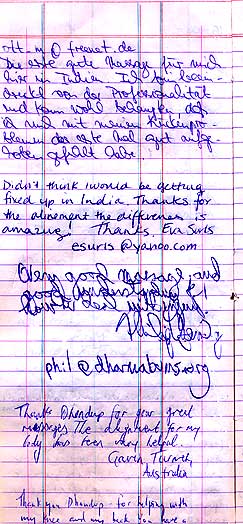 ott-m@freenet.de
Die erste gute Massage für mich
hier in Indien. Ich bin beein-
druckt von der Professionalität
und kann wohl behaupten daß
ich mich mit meinen
das erste Mal gut aufge-
hoben gefühlt habe.
Didn't think I would be getting
fixed up in India. Thanks for
the alinement the difference is
amazing! Thanks, Eva Suris
esuris@yahoo.com
Very good massage and
good understanding of
how to deal with injury.
phil@dharmabums.org
Thanks Dhondup for your great
massages The alignment for my
body has been very helpful.
Gavin
Australia
Thank you Dhondup for helping with
my knee and my back